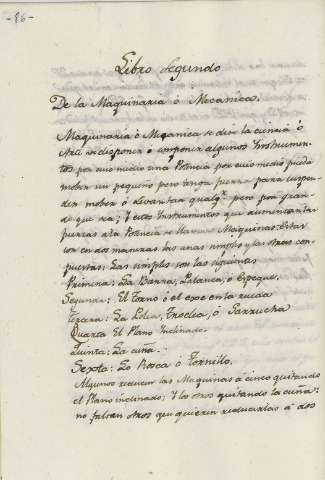 -86-
Libro Segundo
De la Maquinaria ó Mecanica.
Maquinaria ó Mecanica se dice la ciencia ó
Arte se disponer ó componer algunos Instrumen-
tos por cuio medio una Potencia por cuio medio pueda
mober un pequeño pero tenga fuerza para suspen-
der mober ó levantar qualqª. peso por gran-
de que sea; Y estos Instrumentos que aumentan las
fuerzas a la Potencia se llaman Maquinas. Estas
son en dos maneras las unas simples y las otras com-
puestas. Las simples son las siguientes
Primera: La Barra, Palanca, ó Espeque.
Segunda: El Torno ó el exe en la rueda
Tercera: La Polea, Troclea, ó Garrucha
Quarta El Plano Inclinado.
Quinta: La cuña.
Sexta: La Rosca ó Tornillo.
Algunos reducen las Maquinas á cinco quitando
el Plano inclinado; Y los otros quitando la cuña:
no faltan otros que quieren reducirlas á dos